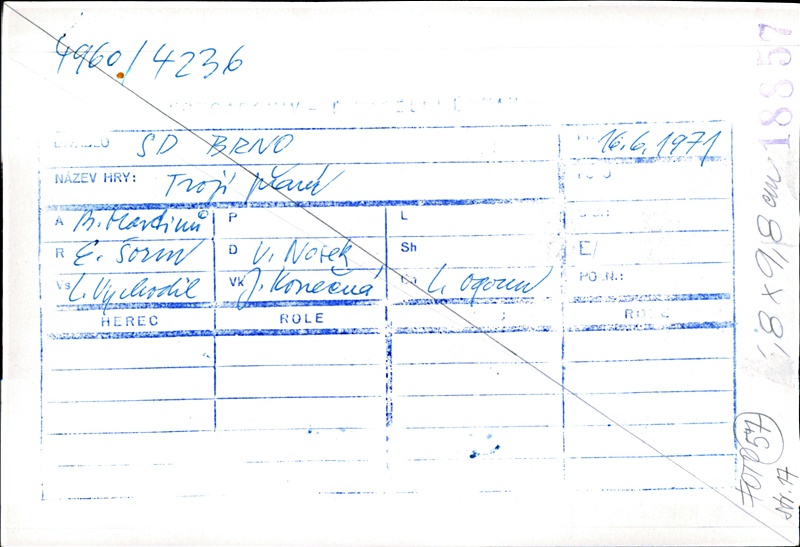 4960/4236
DIVADLO SD BRNO 16.6.1971
NÁZEV HRY: Trojí přání
A B. Martinů P L
R E. Šorm D V. Nosek Sh E/
Vs L. Vychodil Vk J. Konečná L. Ogoun POZN.:
HEREC ROLE
18857
8 x 9,8 cm
FOTO 57
str. 17